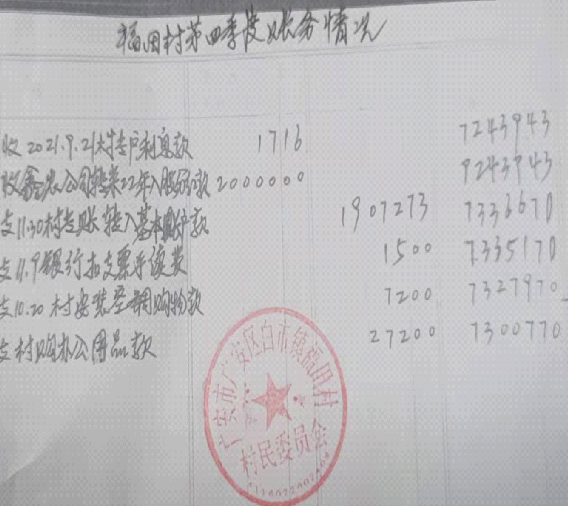 福田村第四季度账务情况
收2021.9.21大专户利息款 1716 7243943
收鑫 公司转来22年入股 款 2000000 9243943
支11.30村支账转入基本账户款 1907273 7336670
支11.9银行扣支票手续费 1500 7335170
支10.20村安装空调购物款 7200 7327970
支村购办公用品款 27200 7300770
广安市广安区白市镇福田村
村民委员会